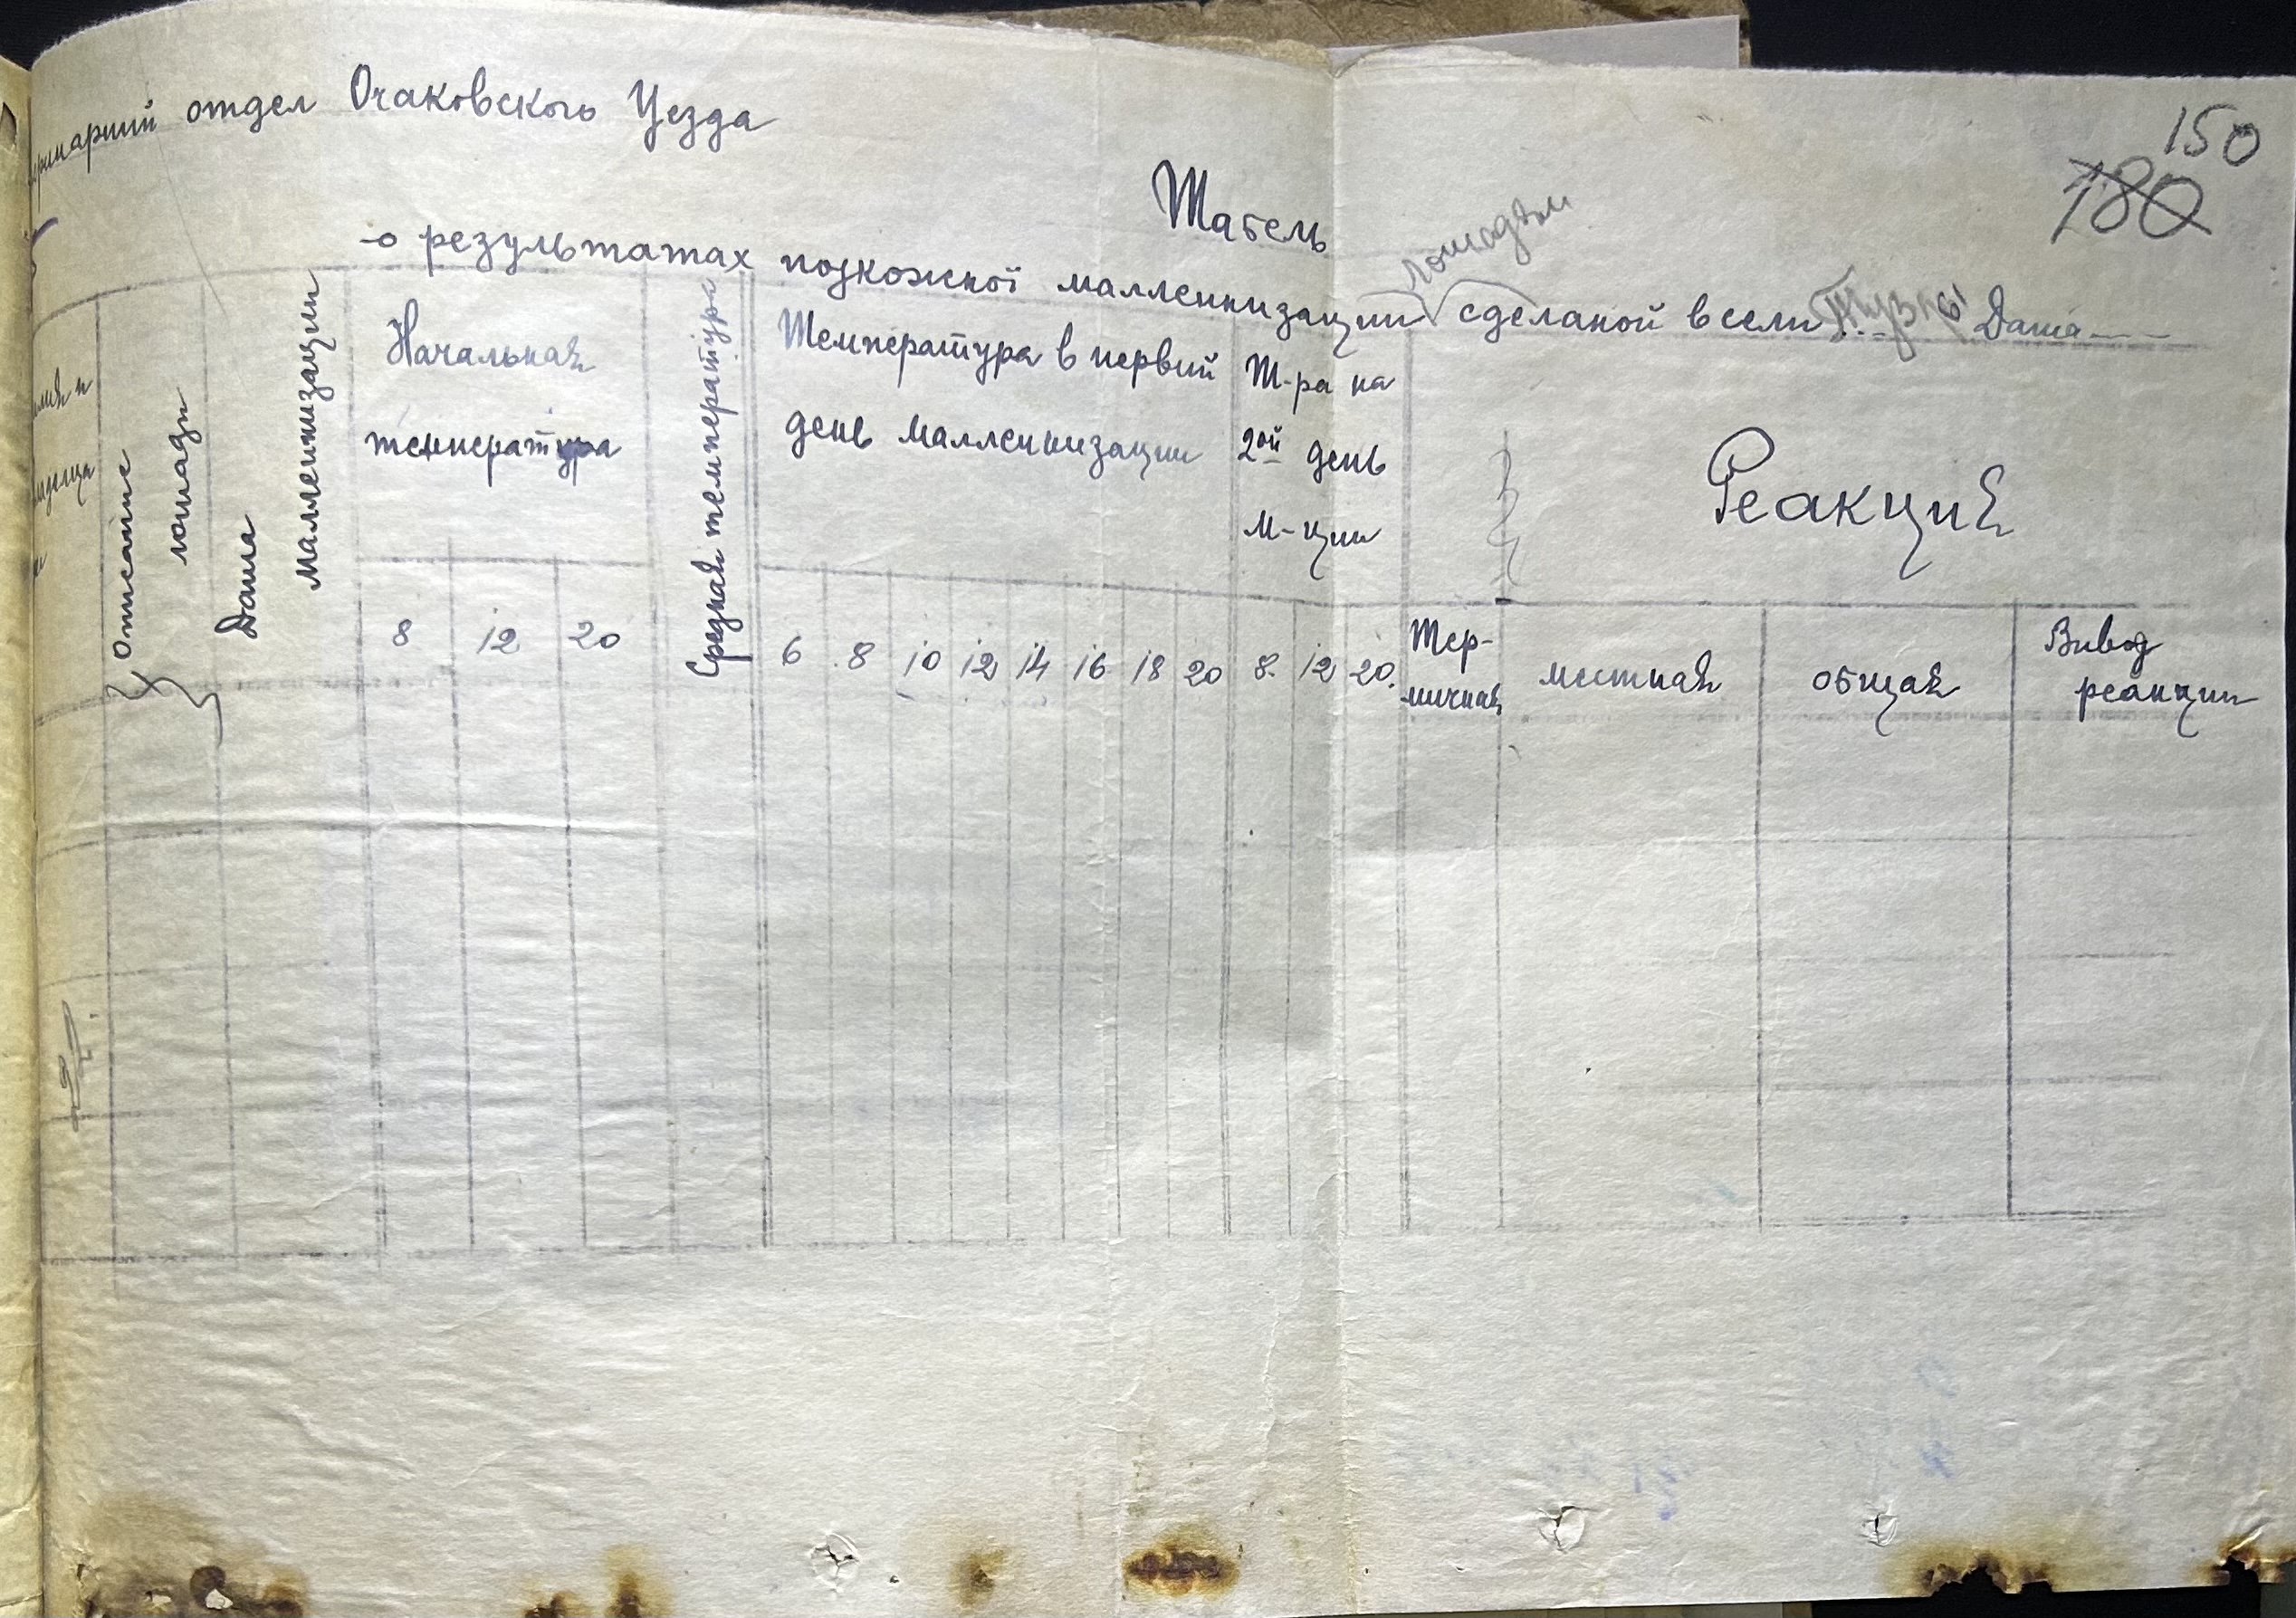 отдел Очаковского Уезда
150
180
Табель
лошадям
о результатах подкожної маллеинизации сделаной в сели ... Тузлы Дата
Описание лошади
Дата маллеинизации
Начальная
температура
Средная температура
Температура в первий
день маллеинизации
Т-ра на
2ой день
м-ции
Реакция
8 12 20
6 8 10 12 14 16 18 20
8 12 20
Тер-
мичная
местная
общая
Вивод
реакции